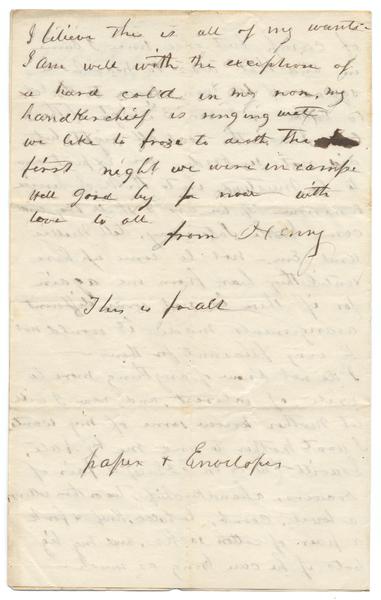 I believe this is all of my wants
I am well with the exception of
a hard cold in my nose, my
handkerchief is ringing wet
we like to froze to death the
first night we were in camp
Well good by for now with
love to all
from Henry
This is for all
paper + Envelopes